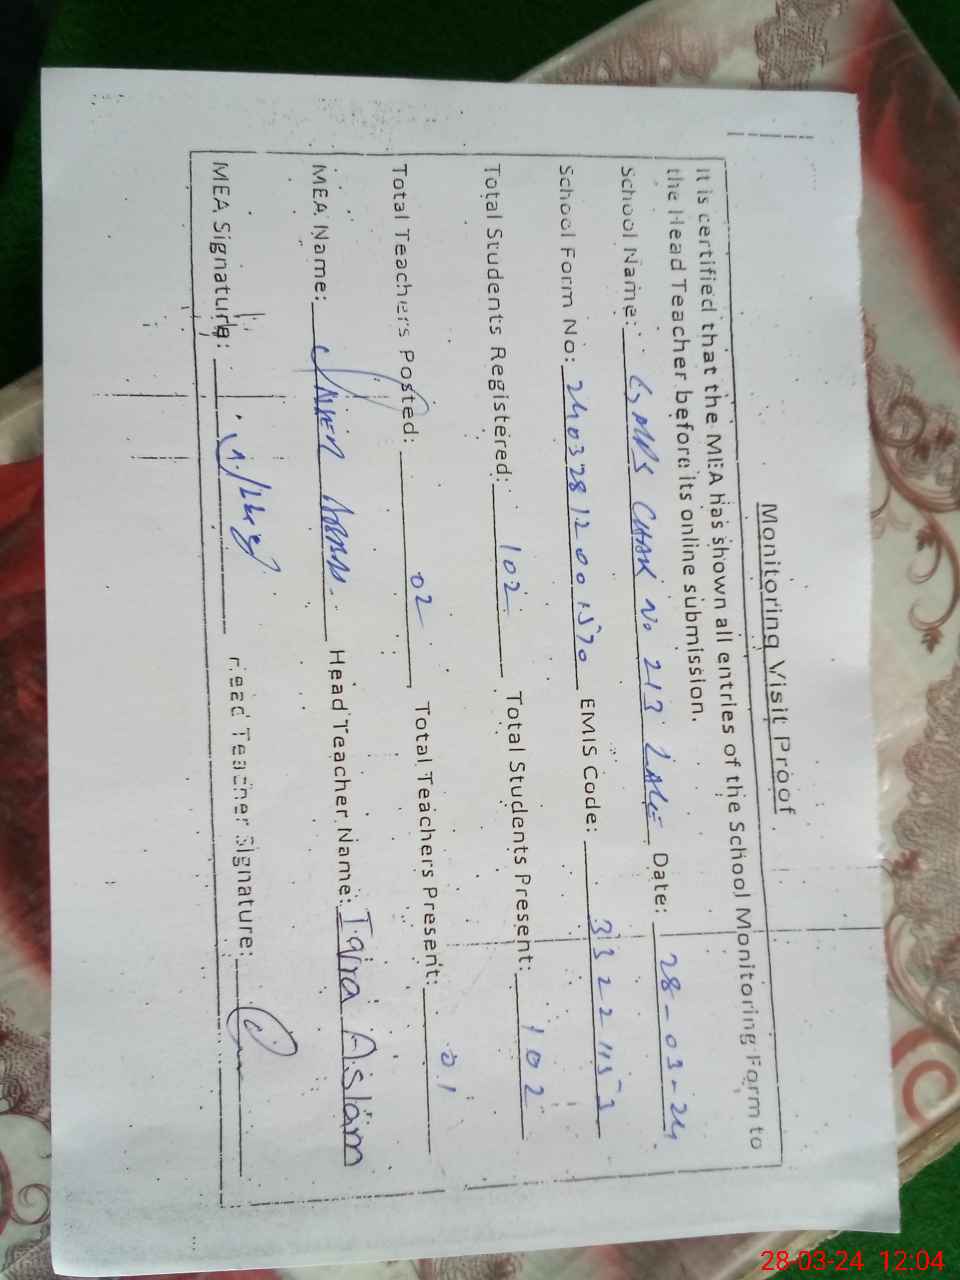 Monitoring Visit Proof
It is certified that the MEA has shown all entries of the School Monitoring Form to
the Head Teacher before its online submission.
School Name: GMPS CHAK No 213 Date: 28-03-24
School Form No: 24032812001570 EMIS Code:
Total Students Registered: 102 Total Students Present: 102
Total Teachers Posted: 02 Total Teachers Present: 01
MEA Name: Head Teacher Name: Iqra Aslam
MEA Signature: Head Teacher Signature:
28-03-24 12:04